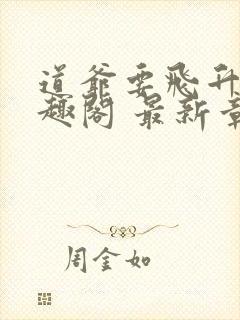 道爷要飞升
趣阁 最新章
周金如